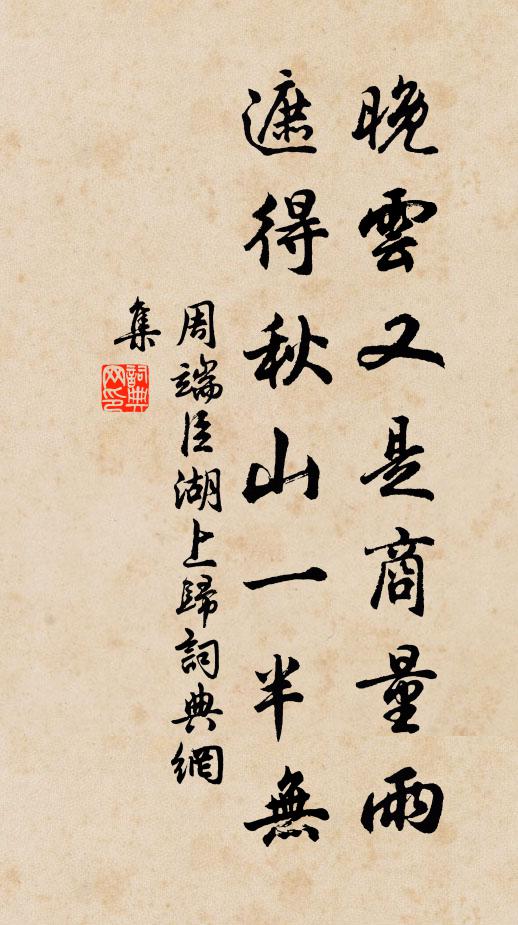 晚雲又是商量雨
遮得秋山一半無
周端臣湖上歸詞典網
集
詞典網印